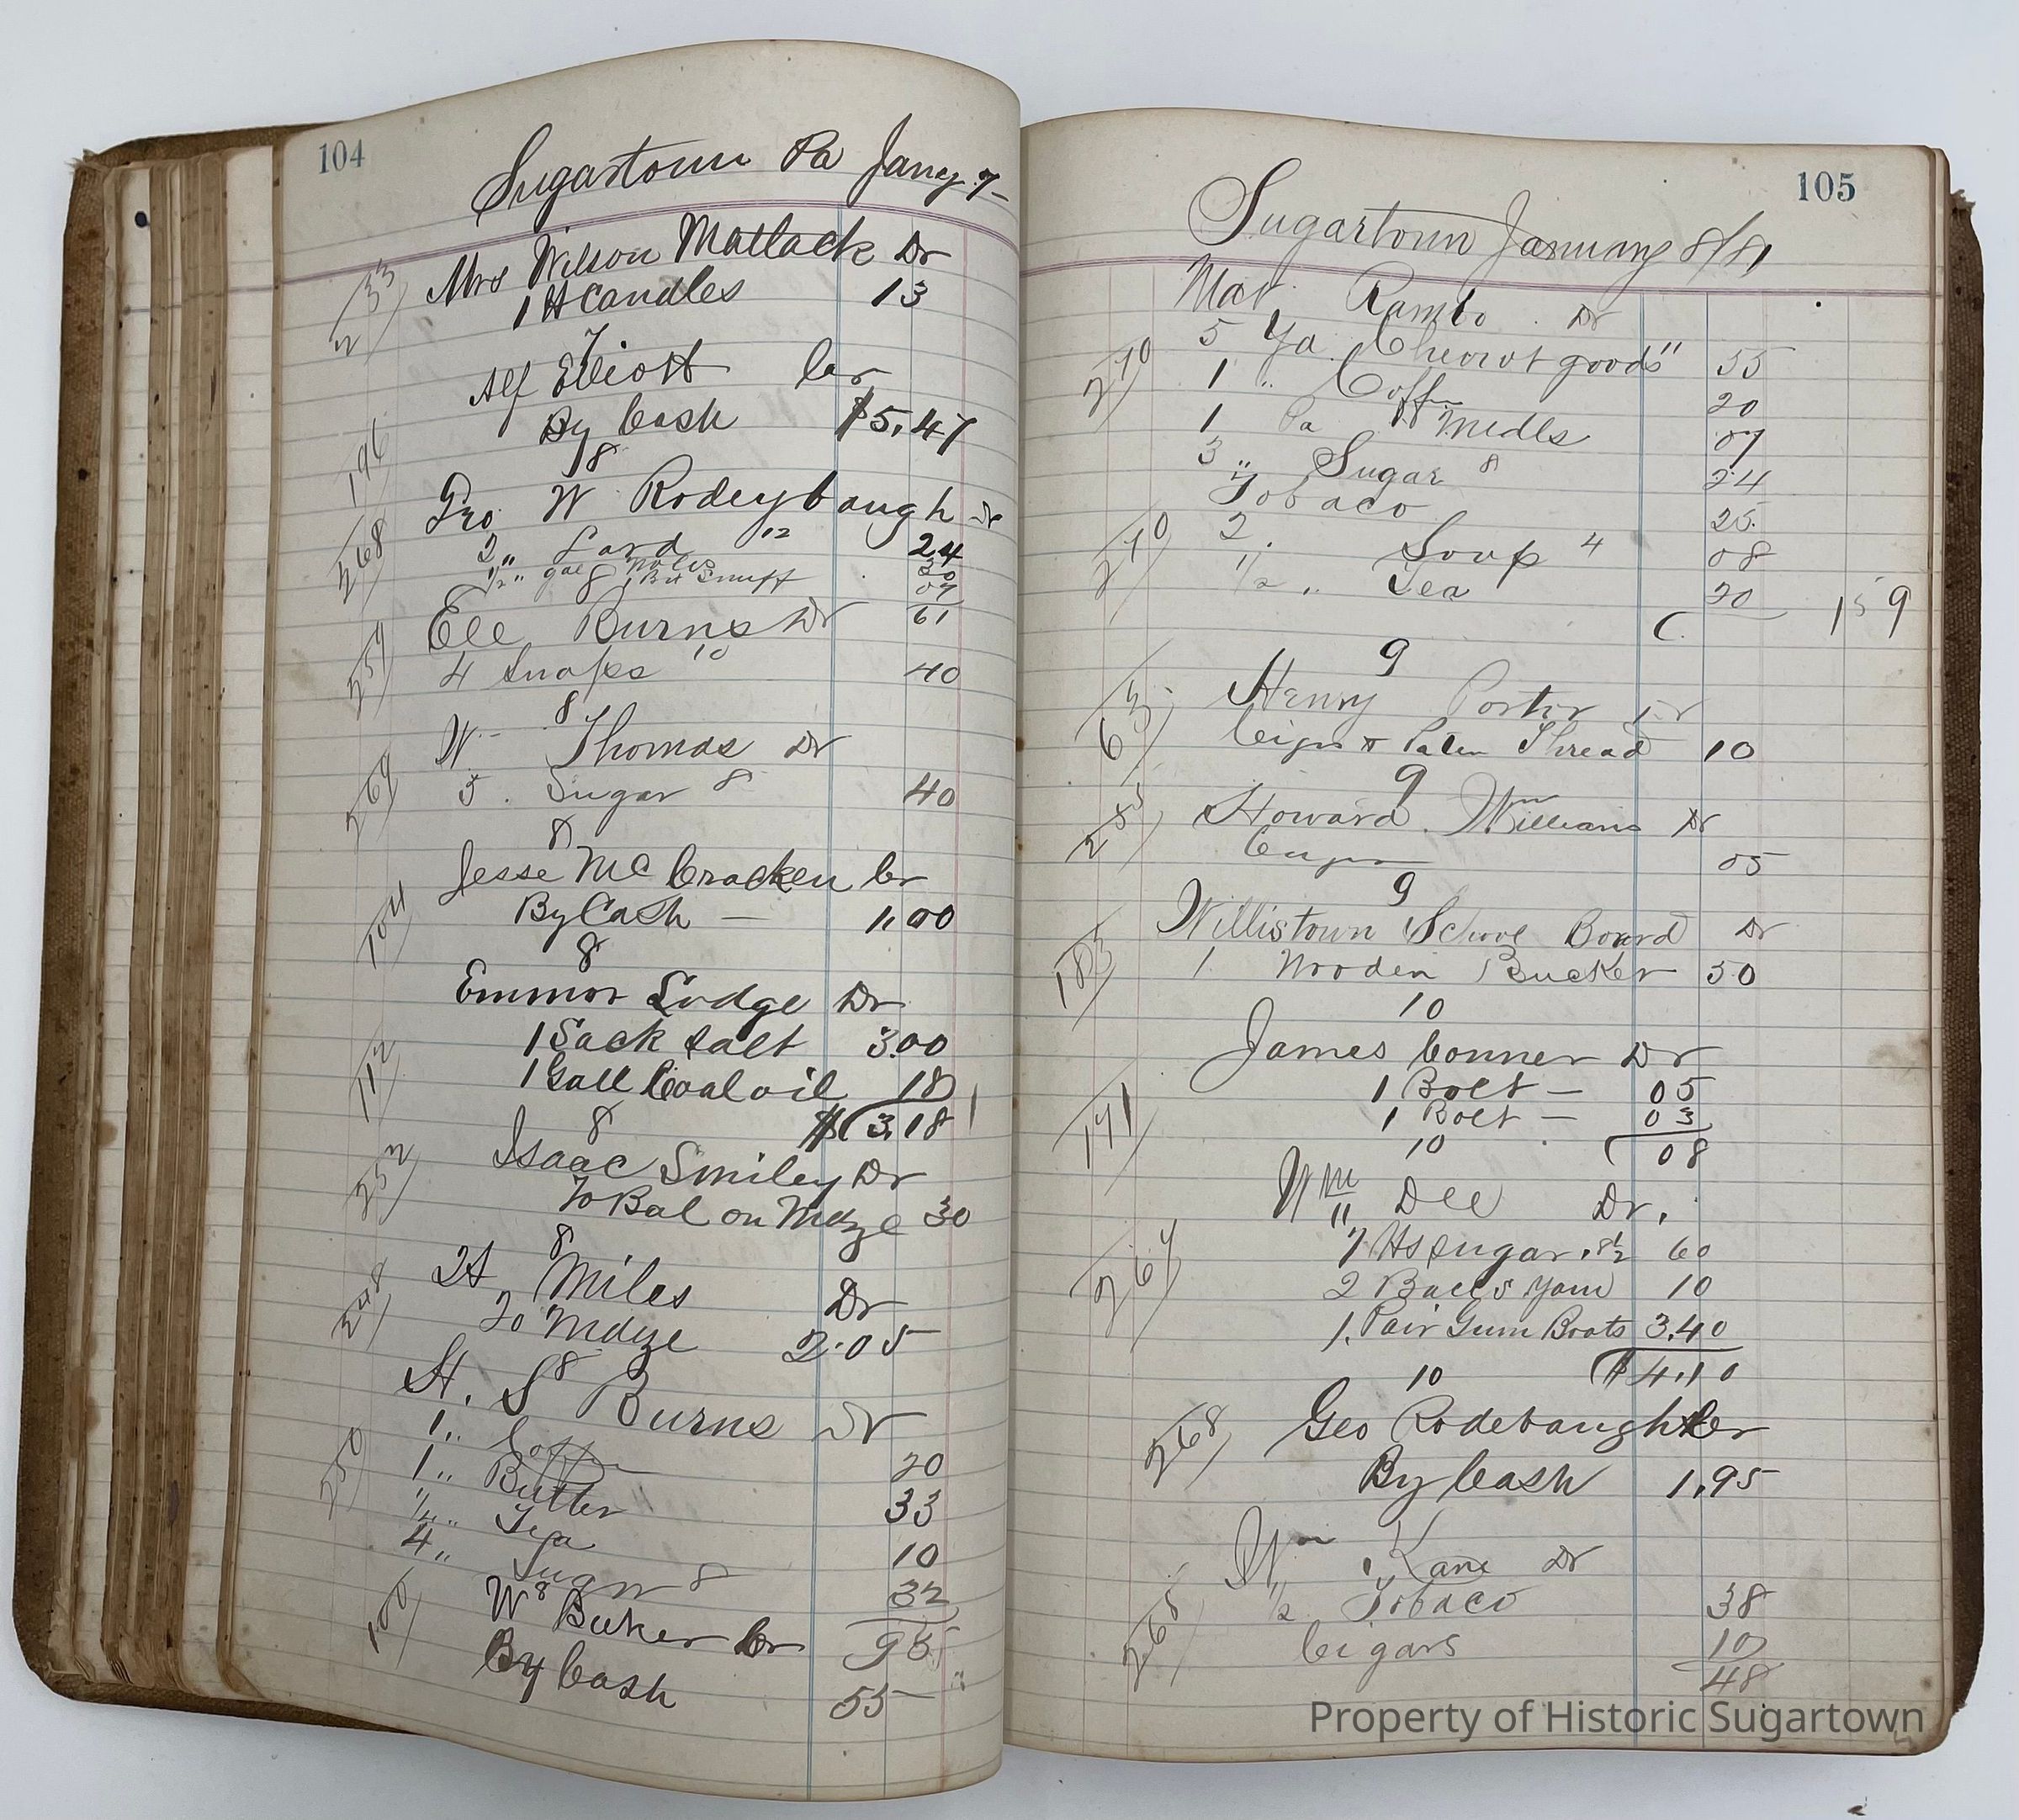 104
Sugartown Pa Jany 7-
Mrs Wilson Matlack Dr
233
1 lb Candles 13
7
Alf Elliott Cr
By Cash $5.47
196
8
Geo W Rodeybaugh Dr
268
2 " Lard 12 24
1/2 " gal Moles 30
8 1 Bot Snuff 07
61
Ell Burns Dr
4 Snaps 10 40
8
Wm Thomas Dr
269
5 . Sugar 8 40
8
Jesse McCracken Cr
By Cash — 1.00
104
8
Emmor Lodge Dr
1 Sack Salt 3.00
112
1 Gall Coal oil 18
$3.18
8
Isaac Smiley Dr
252
To Bal on Mdze 30
8
H Miles Dr
248
To Mdze 2.05
8
H. S Burns Dr
1 " Coffee 20
250
1 " Butter 33
1/4 " Tea 10
4 " Sugar 8 32
95
8
W Buker Cr
100
By Cash 55
105
Sugartown January 8/81
Rambo Dr
5 Yd Cheviot goods " 55
270
1 " Coffee 20
1 Pa Nedls 07
3 " Sugar 8 24
Tobaco 25
270
2 . Soup 4 08
1/2 " Tea 20 159
9
Henry Porter Dr
63
Cigar & Thread 10
9
Howard Williams Dr
Cigar 05
9
Willistown School Board Dr
183
1 Wooden Bucket 50
10
James Conner Dr
1 Bolt — 05
171
1 Bolt — 03
08
10
Wm Dee Dr.
"
7 lbs Sugar . 8 1/2 60
267
2 Balls Yarn 10
1. Pair Gum Boots 3.40
$4.10
10
Geo Rodebaugh Cr
268
By Cash 1.95
Wm Kane Dr
1/2 Tobaco 38
268
Cigars 10
48
Property of Historic Sugartown